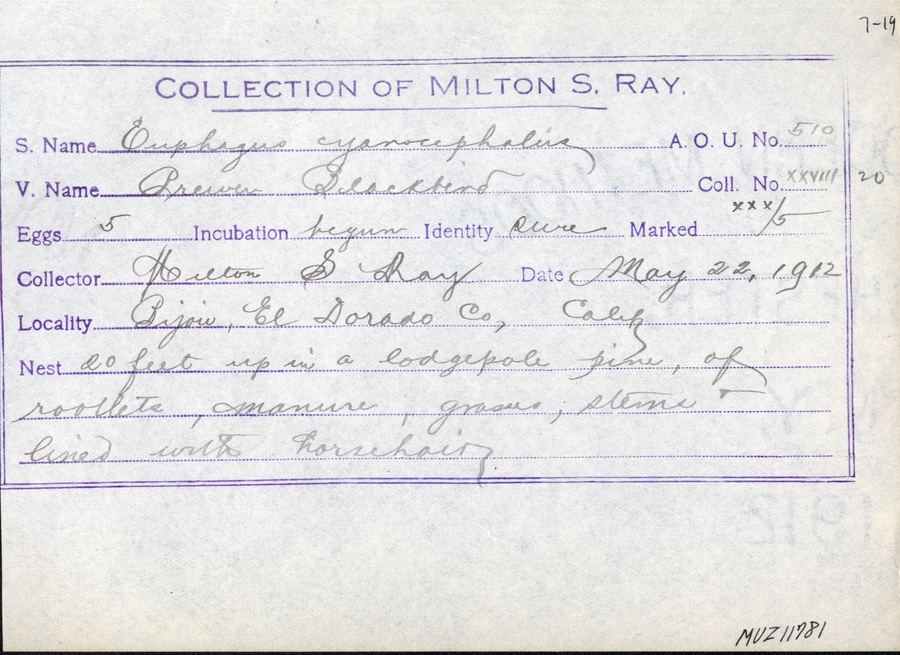 7-19
COLLECTION OF MILTON S. RAY.
S. Name Euphagus cyanocephalus A. O. U. No. 510
V. Name Brewer Blackbird Coll. No. XXVIII 20
Eggs 5 Incubation begun Identity sure Marked xxx/5
Collector Milton S Ray Date May 22, 1912
Locality Bijou, El Dorado Co, Calif
Nest 20 feet up in a lodgepole pine, of
rootlets, manure, grasses, stems
lined with horsehair
MUZ11781